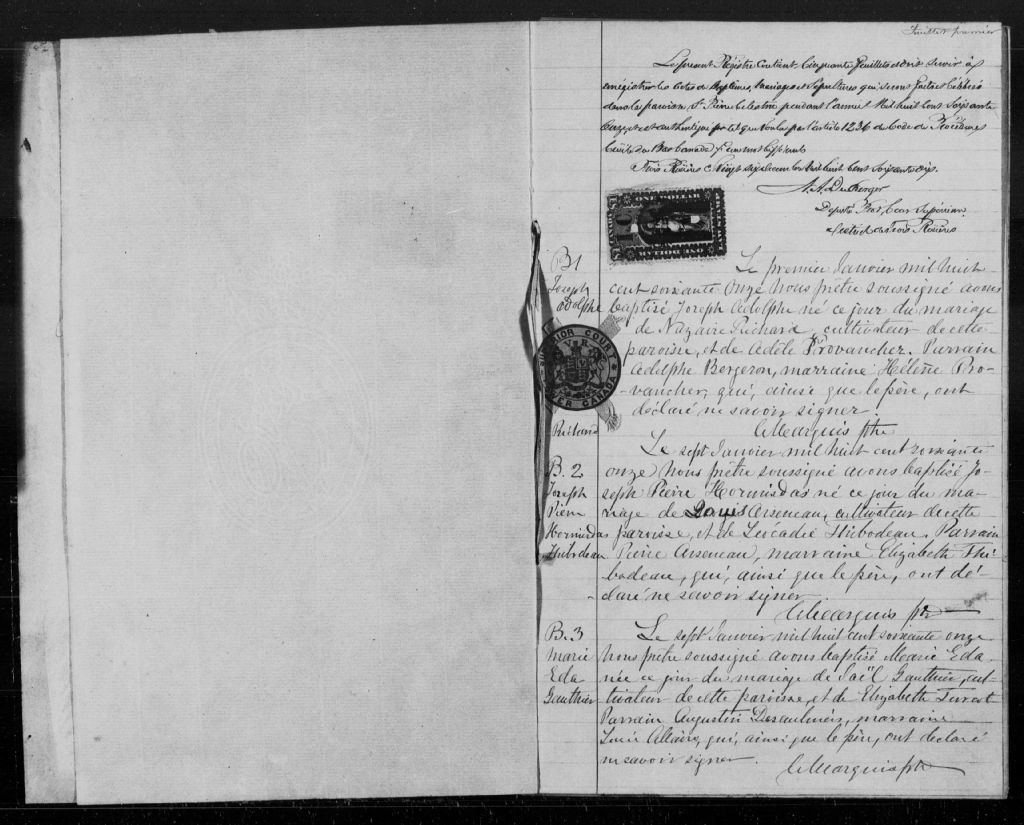 Feuillet premier
Le présent Registre contient cinquante feuillets et doit servir à
enrégistrer les actes de Baptêmes, mariages et sépultures qui seront faits et célébrés
dans la paroisse St Pierre Célestin pendant l'année mil huit cent soixante
onze, et est authentiqué tel que voulu par l'article 1236 du Code de Procédures
Civile du Bas Canada
Trois Rivières
Député Prot. Cour Supérieure
District de Trois Rivières
SUPERIOR COURT
LOWER CANADA
B1
Joseph
Adolphe
Richard
Le premier Janvier mil huit
cent soixante onze nous prêtre soussigné avons
baptisé Joseph Adolphe né ce jour du mariage
de Nazaire Richard, cultivateur de cette
paroisse, et de Adèle Provancher. Parrain
Adolphe Bergeron, marraine Hélène Pro-
-vancher, qui, ainsi que le père, ont
déclaré ne savoir signer.
CMarquis ptre
B. 2
Joseph
Pierre
Hormisdas
Thibodeau
Le sept Janvier mil huit cent soixante
onze nous prêtre soussigné avons baptisé Jo-
seph Pierre Hormisdas né ce jour du ma-
riage de Louis Arseneau, cultivateur de cette
paroisse, et de Léocadie Thibodeau. Parrain
Pierre Arseneau, marraine Elizabeth Thi-
bodeau, qui, ainsi que le père, ont dé-
-claré ne savoir signer
CMarquis ptre
B. 3
Marie
Eda
Gauthier
Le sept Janvier mil huit cent soixante onze
nous prêtre soussigné avons baptisé Marie Eda
née ce jour du mariage de Joël Gauthier, cul-
tivateur de cette paroisse, et de Elizabeth Turcot
Parrain Augustin Desaulniers, marraine
Lucie Allaire, qui, ainsi que le père, ont déclaré
ne savoir signer.
CMarquis ptre